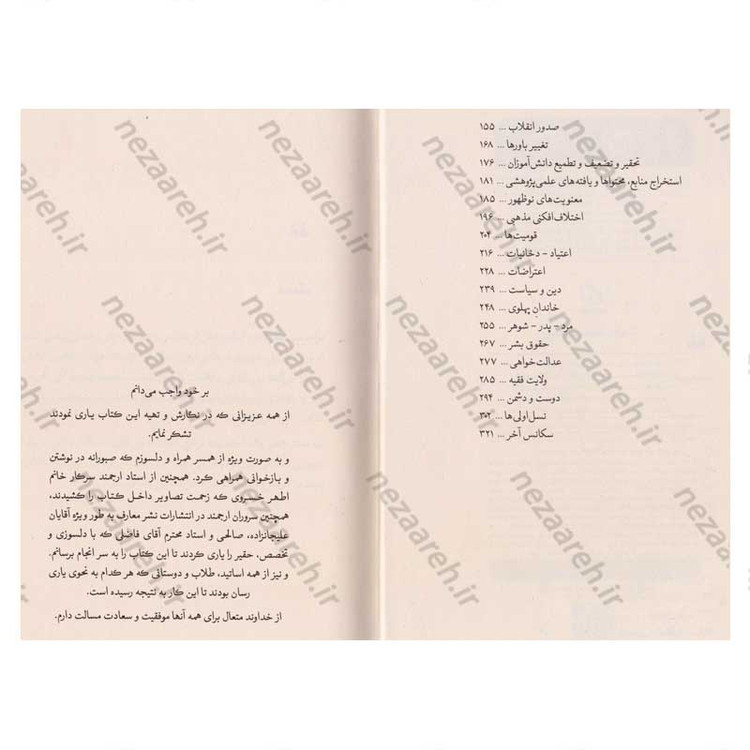 صدور انقلاب ... ۱۵۵
تغییر باورها ... ۱۶۸
تحقیر و تضعیف و تطمیع دانش‌آموزان ... ۱۷۶
استخراج منابع، محتواها و یافته‌های علمی پژوهشی ... ۱۸۱
معنویت‌های نوظهور ... ۱۸۵
اختلاف‌افکنی مذهبی ... ۱۹۶
قومیت‌ها ... ۲۰۴
اعتیاد - دخانیات ... ۲۱۶
اعتراضات ... ۲۲۸
دین و سیاست ... ۲۳۹
خاندان پهلوی ... ۲۴۸
مرد - پدر - شوهر ... ۲۵۵
حقوق بشر ... ۲۶۷
عدالت‌خواهی ... ۲۷۷
ولایت فقیه ... ۲۸۵
دوست و دشمن ... ۲۹۴
نسل اولی‌ها ... ۳۰۲
سکانس آخر ... ۳۲۱
بر خود واجب می‌دانم
از همه عزیزانی که در نگارش و تهیه این کتاب یاری نمودند
تشکر نمایم.
و به صورت ویژه از همسر همراه و دلسوزم که صبورانه در نوشتن
و بازخوانی همراهی کرد. همچنین از استاد ارجمند سرکار خانم
اطهر خسروی که زحمت تصاویر داخل کتاب را کشیدند،
همچنین سروران ارجمند در انتشارات نشر معارف به طور ویژه آقایان
علیجانزاده، صالحی و استاد محترم آقای فاضلی که با دلسوزی و
تخصص، حقیر را یاری کردند تا این کتاب را به سر انجام برسانم.
و نیز از همه اساتید، طلاب و دوستانی که هر کدام به نحوی یاری
رسان بودند تا این کار به نتیجه رسیده است.
از خداوند متعال برای همه آنها موفقیت و سعادت مسالت دارم.
nezaareh.ir
nezaareh.ir
nezaareh.ir
nezaareh.ir
nezaareh.ir
nezaareh.ir
nezaareh.ir
nezaareh.ir
nezaareh.ir
nezaareh.ir
nezaareh.ir